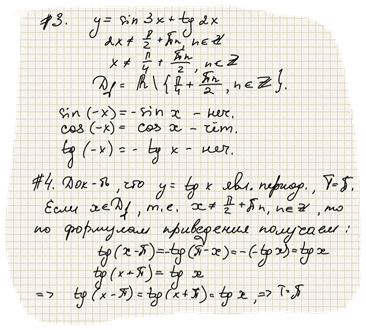 #3. y = sin 3x + tg 2x
2x ≠ π/2 + πn, n∈Z
x ≠ π/4 + πn/2, n∈Z
D_f = R \ {π/4 + πn/2, n∈Z}.
sin(-x) = -sin x - неч.
cos(-x) = cos x - чёт.
tg(-x) = - tg x - неч.
#4. Док-ть, что y = tg x явл. период., T=π.
Если x∈D_f, т.е. x ≠ π/2 + πn, n∈Z, то
по формулам приведения получаем:
tg(x-π) = -tg(π-x) = -(-tg x) = tg x
tg(x+π) = tg x
=> tg(x-π) = tg(x+π) = tg x, => T=π